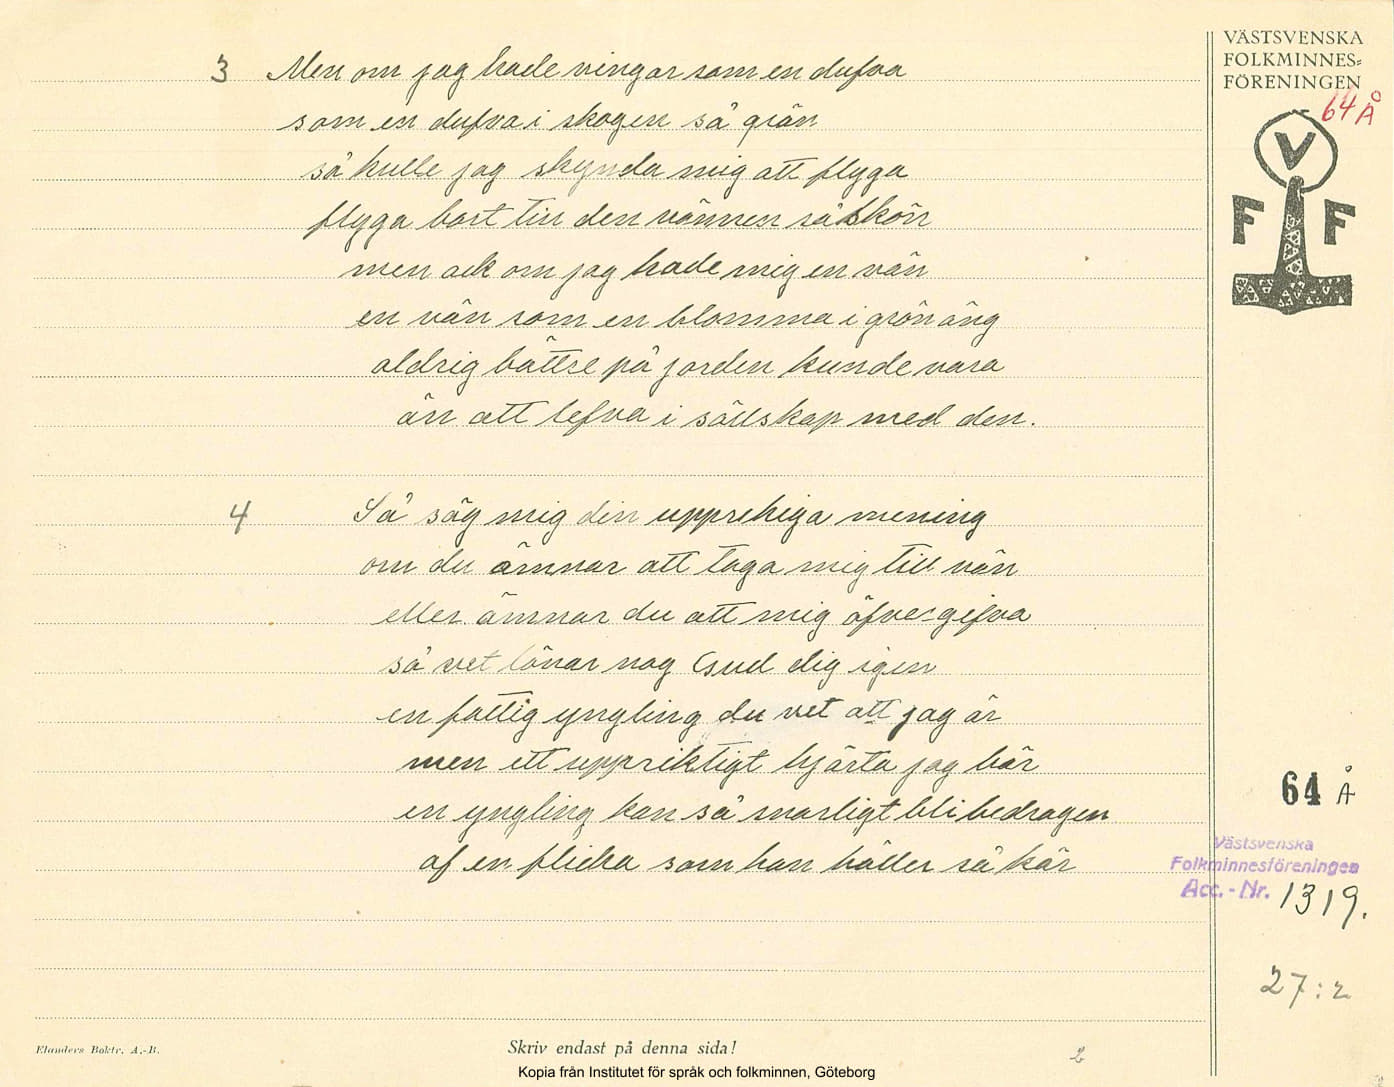 VÄSTSVENSKA
FOLKMINNES=
FÖRENINGEN
64 Å
V
F F
3 Men om jag hade vingar som en dufva
som en dufva i skogen så grän
så kulle jag skynda mig att flyga
flyga bort till den vännen så skön
men ack om jag hade mig en vän
en vän som en blomma i grön äng
aldrig bättre på jorden kunde vara
än att lefva i sällskap med den.
4 Så säg mig din upprekiga mening
om du ämnar att taga mig till vän
eller ämnar du att mig öfvergifva
så vet lönar nog Gud dig igen
en fattig yngling du vet att jag är
men ett uppriktigt hjärta jag bär
en yngling kan så snarligt bli bedragen
af en flicka som han håller så kär
64 Å
Västsvenska
Folkminnesföreningen
Acc.-Nr. 1319.
27:2
Elanders Boktr. A.-B.
Skriv endast på denna sida!
2
Kopia från Institutet för språk och folkminnen, Göteborg